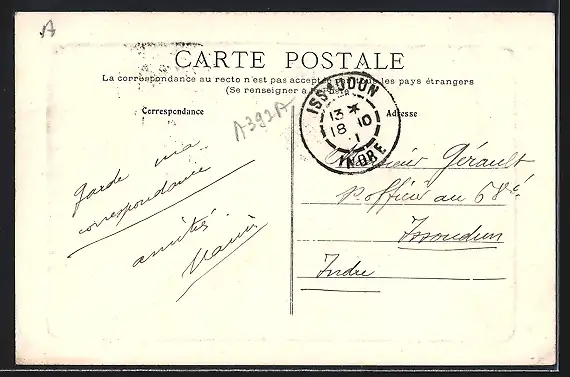 A
CARTE POSTALE
La correspondance au recto n'est pas acceptée par tous les pays étrangers
(Se renseigner à la
Correspondance
Adresse
A392A
ISSOUDUN
13 *
18 10
1
INDRE
Garde ma
correspondance
amitiés
Monsieur Gérault
s/officier au 68e
Issoudun
Indre